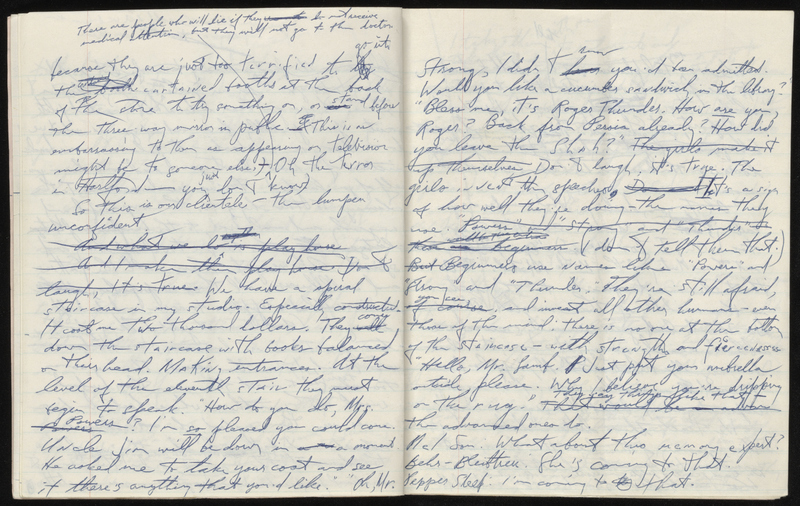 There are people who will die if they do not receive
medical attention, but they will not go to the doctor
because they are just too terrified to go into
the curtained booths at the back
of the store to try something on, or stand before
the three-way mirror in public. This is as
embarrassing to them as appearing on television
might be to someone else. Oh the terror
in Hartford — you just don't know)
So this is our clientele — the lumpen
unconfident
And what we do is play house
And I make them play house. Don't
laugh, it's true. We have a spiral
staircase in my studio. Especially constructed.
It cost me two thousand dollars. They come
down the staircase with books balanced
on their head. Making entrances. At the
level of the eleventh stair they must
begin to speak. "How do you do, Mrs.
Powers? I'm so pleased you could come.
Uncle Jim will be down in a moment
He asked me to take your coat and see
if there's anything that you'd like." "Oh, Mr.
Strong, I didn't know you'd been admitted.
Would you like a cucumber sandwich in the library?"
"Bless me, it's Roger Thunder. How are you,
Roger? Back from Persia already? How did
you leave the Shah?" The girls make it
up themselves Don't laugh, it's true. The
girls invent the speeches, It's a sign
of how well they're doing the names they
use "Powers" "Strong" and "Thunder"
beginners (I don't tell them that.)
But Beginners use names like "Powers" and
Strong and "Thunder." They're still afraid,
of course, and invest all other humans — even
those of the mind: there is no one at the bottom
of the staircase — with strength and fierceness
"Hello, Mr. Just put your umbrella
outside, please. Why, I believe you're dripping
on the rug."
the advanced ones do.
Mel Son: What about the memory expert?
She's coming to that.
Pepper Steep: I'm coming to that.